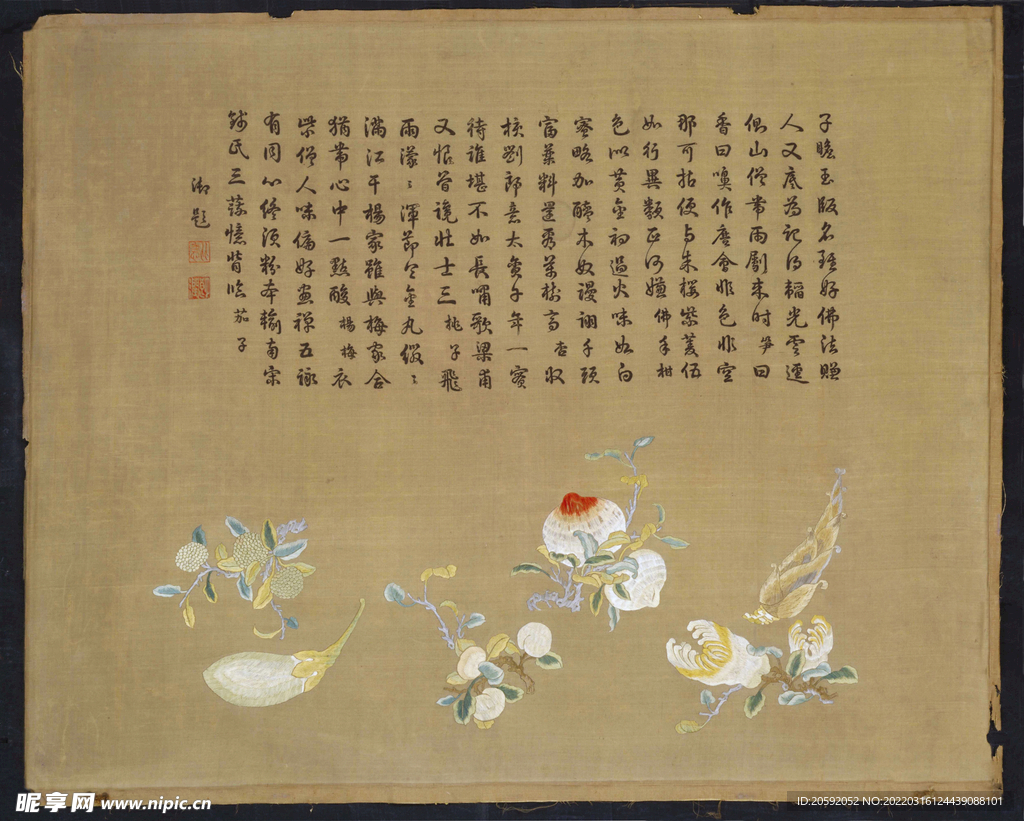 子瞻玉版名殊好佛法贈
人又底為記得韜光雲邃
侶山僧常雨劚來時 笋 曰
香曰嗅作麽會非色非空
那可拈便與朱櫻紫蔆伍
如行異數正何嫌 佛手柑
色似黃金初過火味如白
蜜略加醯木奴謾詡千頭
富葉料還看萬樹高 杏 收
核劉郎意太貪千年一實
待誰堪不如長嘯歌梁甫
又恨曾讒壯士三 桃子 飛
雨濛〻渾節令金丸綴〻
滿江干楊家雖與梅家合
猶帶心中一點酸 楊梅 衣
紫僧人味偏好畫禪五詠
有同心終須粉本輸南宋
錢氏三蔬憶昔臨 茄子
御題
昵享网 www.nipic.cn
ID:20592052 NO:20220316124439088101